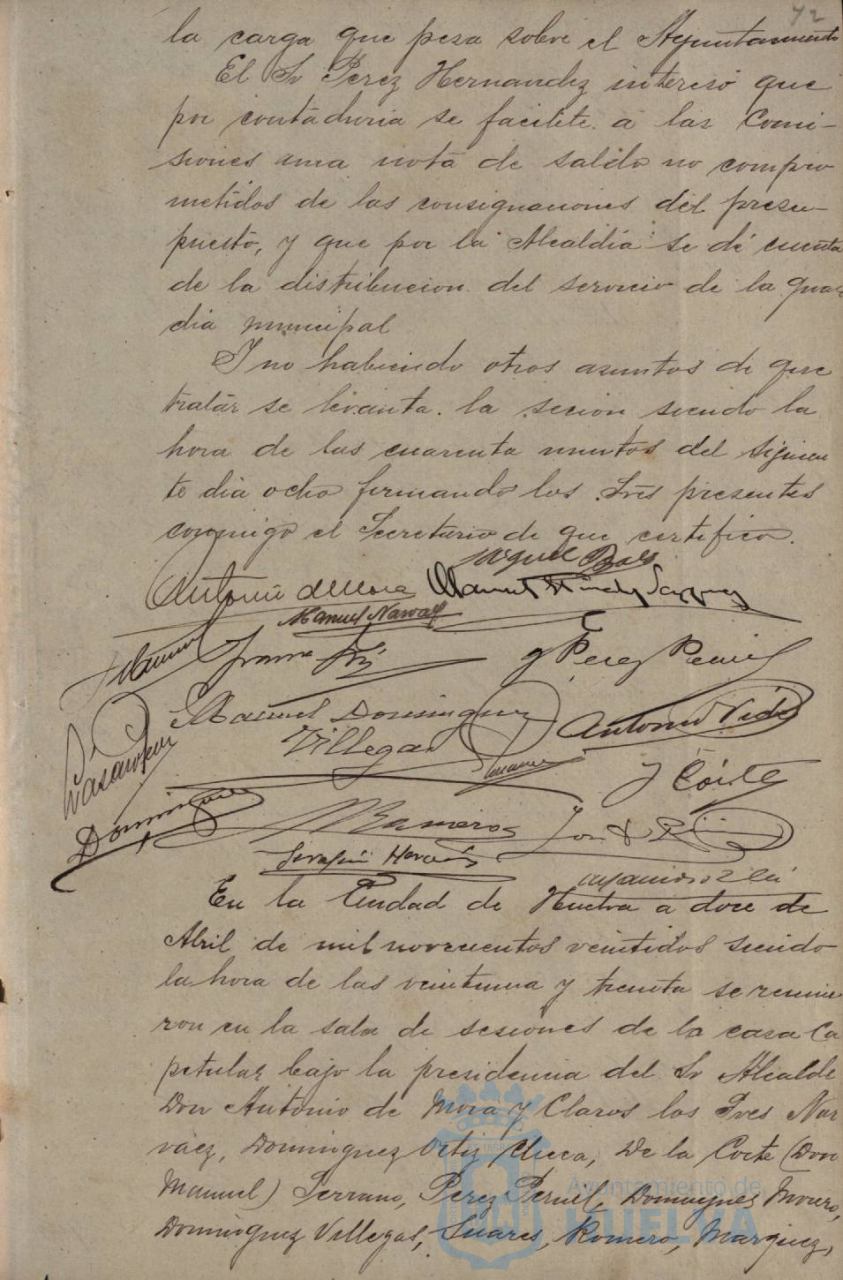 72
la carga que pesa sobre el Ayuntamiento
El Sr Perez Hernandez interesó que
por contaduria se facilite a las Comi-
siones una nota de saldo no compro
metidos de las consignaciones del presu-
puesto, y que por la Alcaldia se dé cuenta
de la distribucion del servicio de la guar
dia municipal
I no habiendo otros asuntos de que
tratar se levanta la sesion siendo la
hora de las cuarenta minutos del siguien
te dia ocho firmando los Sres presentes
conmigo el Secretario de que certifico.
Antonio de Mora Manuel
Manuel Narvaez
J Perez Peruil
Manuel Dominguez
Villegas
Antonio Vide
J Córte
Dominguez
Romero
Serafin
En la Ciudad de Huelva a doce de
Abril de mil novecientos veintidos siendo
la hora de las veintiuna y treinta se reunie
ron en la sala de sesiones de la casa Ca
pitular bajo la presidencia del Sr Alcalde
Don Antonio de Mora y Claros los Sres Nar
vaez, Dominguez Ortiz Checa, De la Corte (Don
Manuel) Serrano, Perez Peruil, Domingues Mouro,
Dominguez Villegas, Suares, Romero, Marquez,
Ayuntamiento de
HUELVA